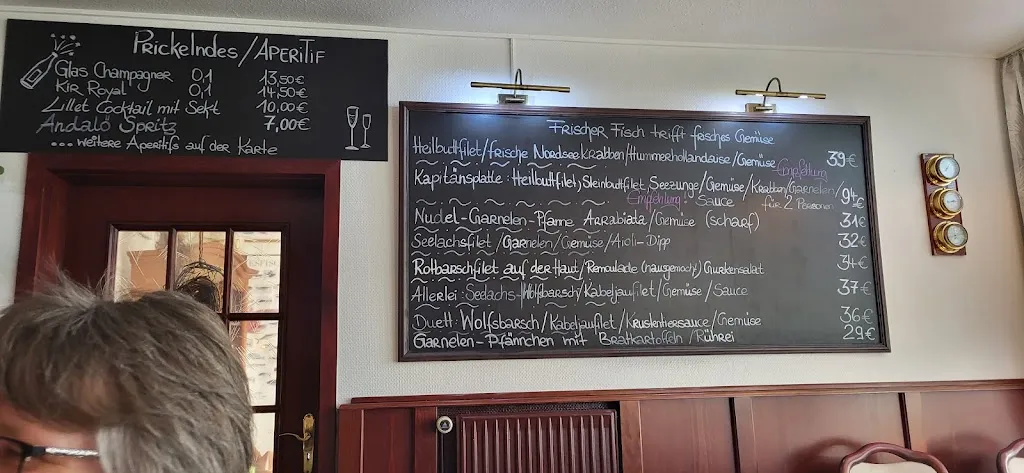 Prickelndes/Aperitif
Glas Champagner 0,1 13,50€
Kir Royal 0,1 14,50€
Lillet Cocktail mit Sekt 10,00€
Andalö Spritz 7,00€
... weitere Aperitifs auf der Karte
Frischer Fisch trifft frisches Gemüse
Heilbuttfilet/frische Nordseekrabben/Hummerhollandaise/Gemüse 39€
Empfehlung
Kapitänsplatte: Heilbuttfilet, Steinbuttfilet, Seezunge/Gemüse/Krabben/Garnelen/ 94€
Empfehlung Sauce für 2 Personen
Nudel-Garnelen-Pfanne Arrabiata/Gemüse (scharf) 31€
Seelachsfilet/Garnelen/Gemüse/Aioli-Dipp 32€
Rotbarschfilet auf der Haut/Remoulade (hausgemacht) Gurkensalat 34€
Allerlei: Seelachs-Wolfsbarsch/Kabeljaufilet/Gemüse/Sauce 37€
Duett: Wolfsbarsch/Kabeljaufilet/Krustentiersauce/Gemüse 36€
Garnelen-Pfännchen mit Bratkartoffeln/Rührei 29€